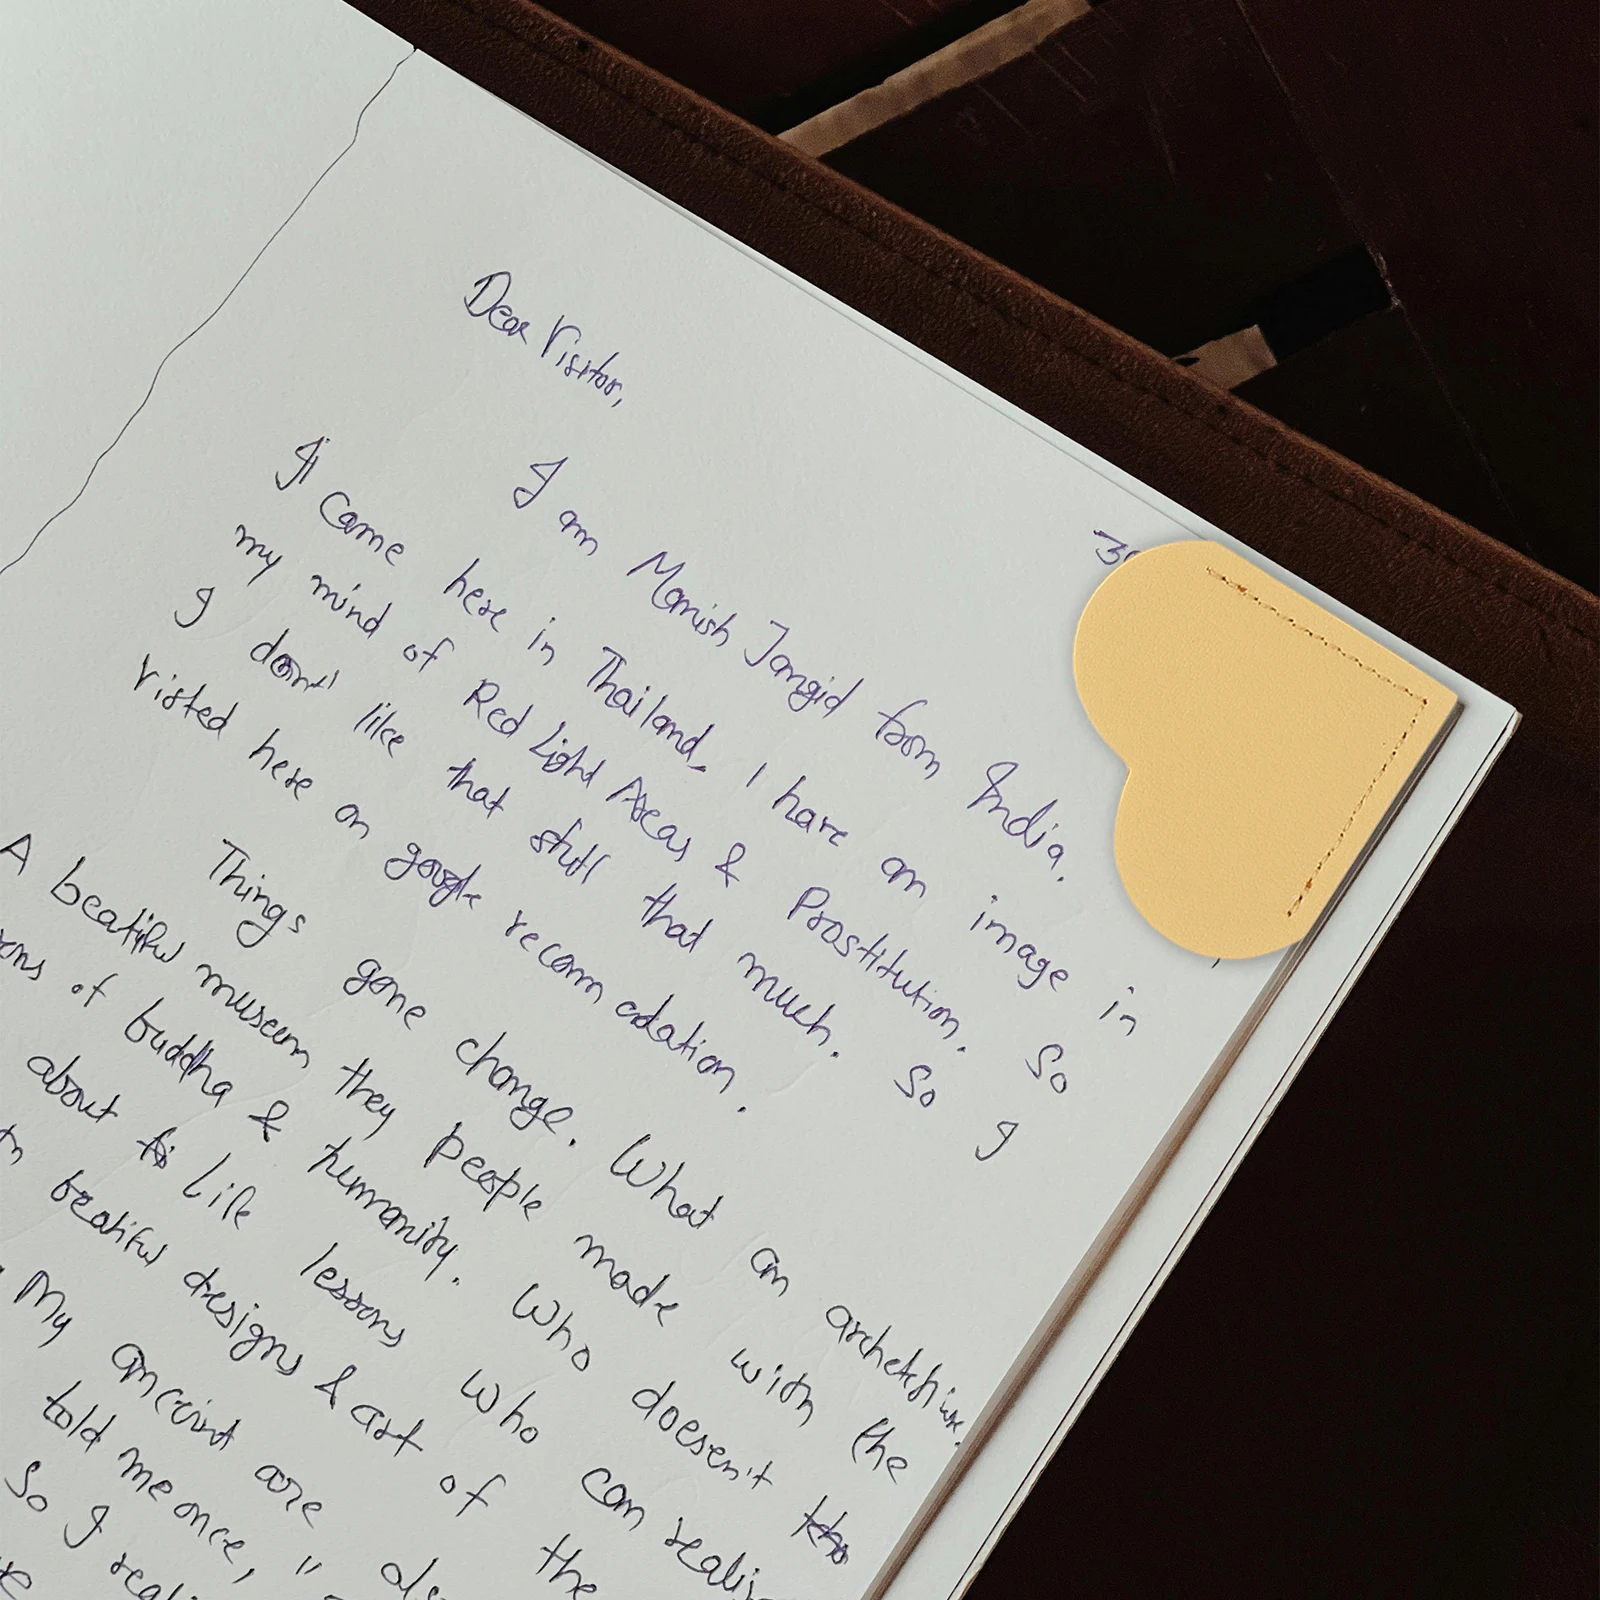 30
Dear Visitor,
I am Manish Jangid from India.
I came here in Thailand, I have an image in
my mind of Red Light Areas & Prostitution. So
I don't like that stuff that much. So I
visted here on google recomndation.
Things gone change. What an archetchure.
A beatifw museum they people made with the
of buddha & humanity. Who doesen't
about Life lessons who can realis
beatifw designs & art of the
My ancoint are als
told me once, "
So I reali